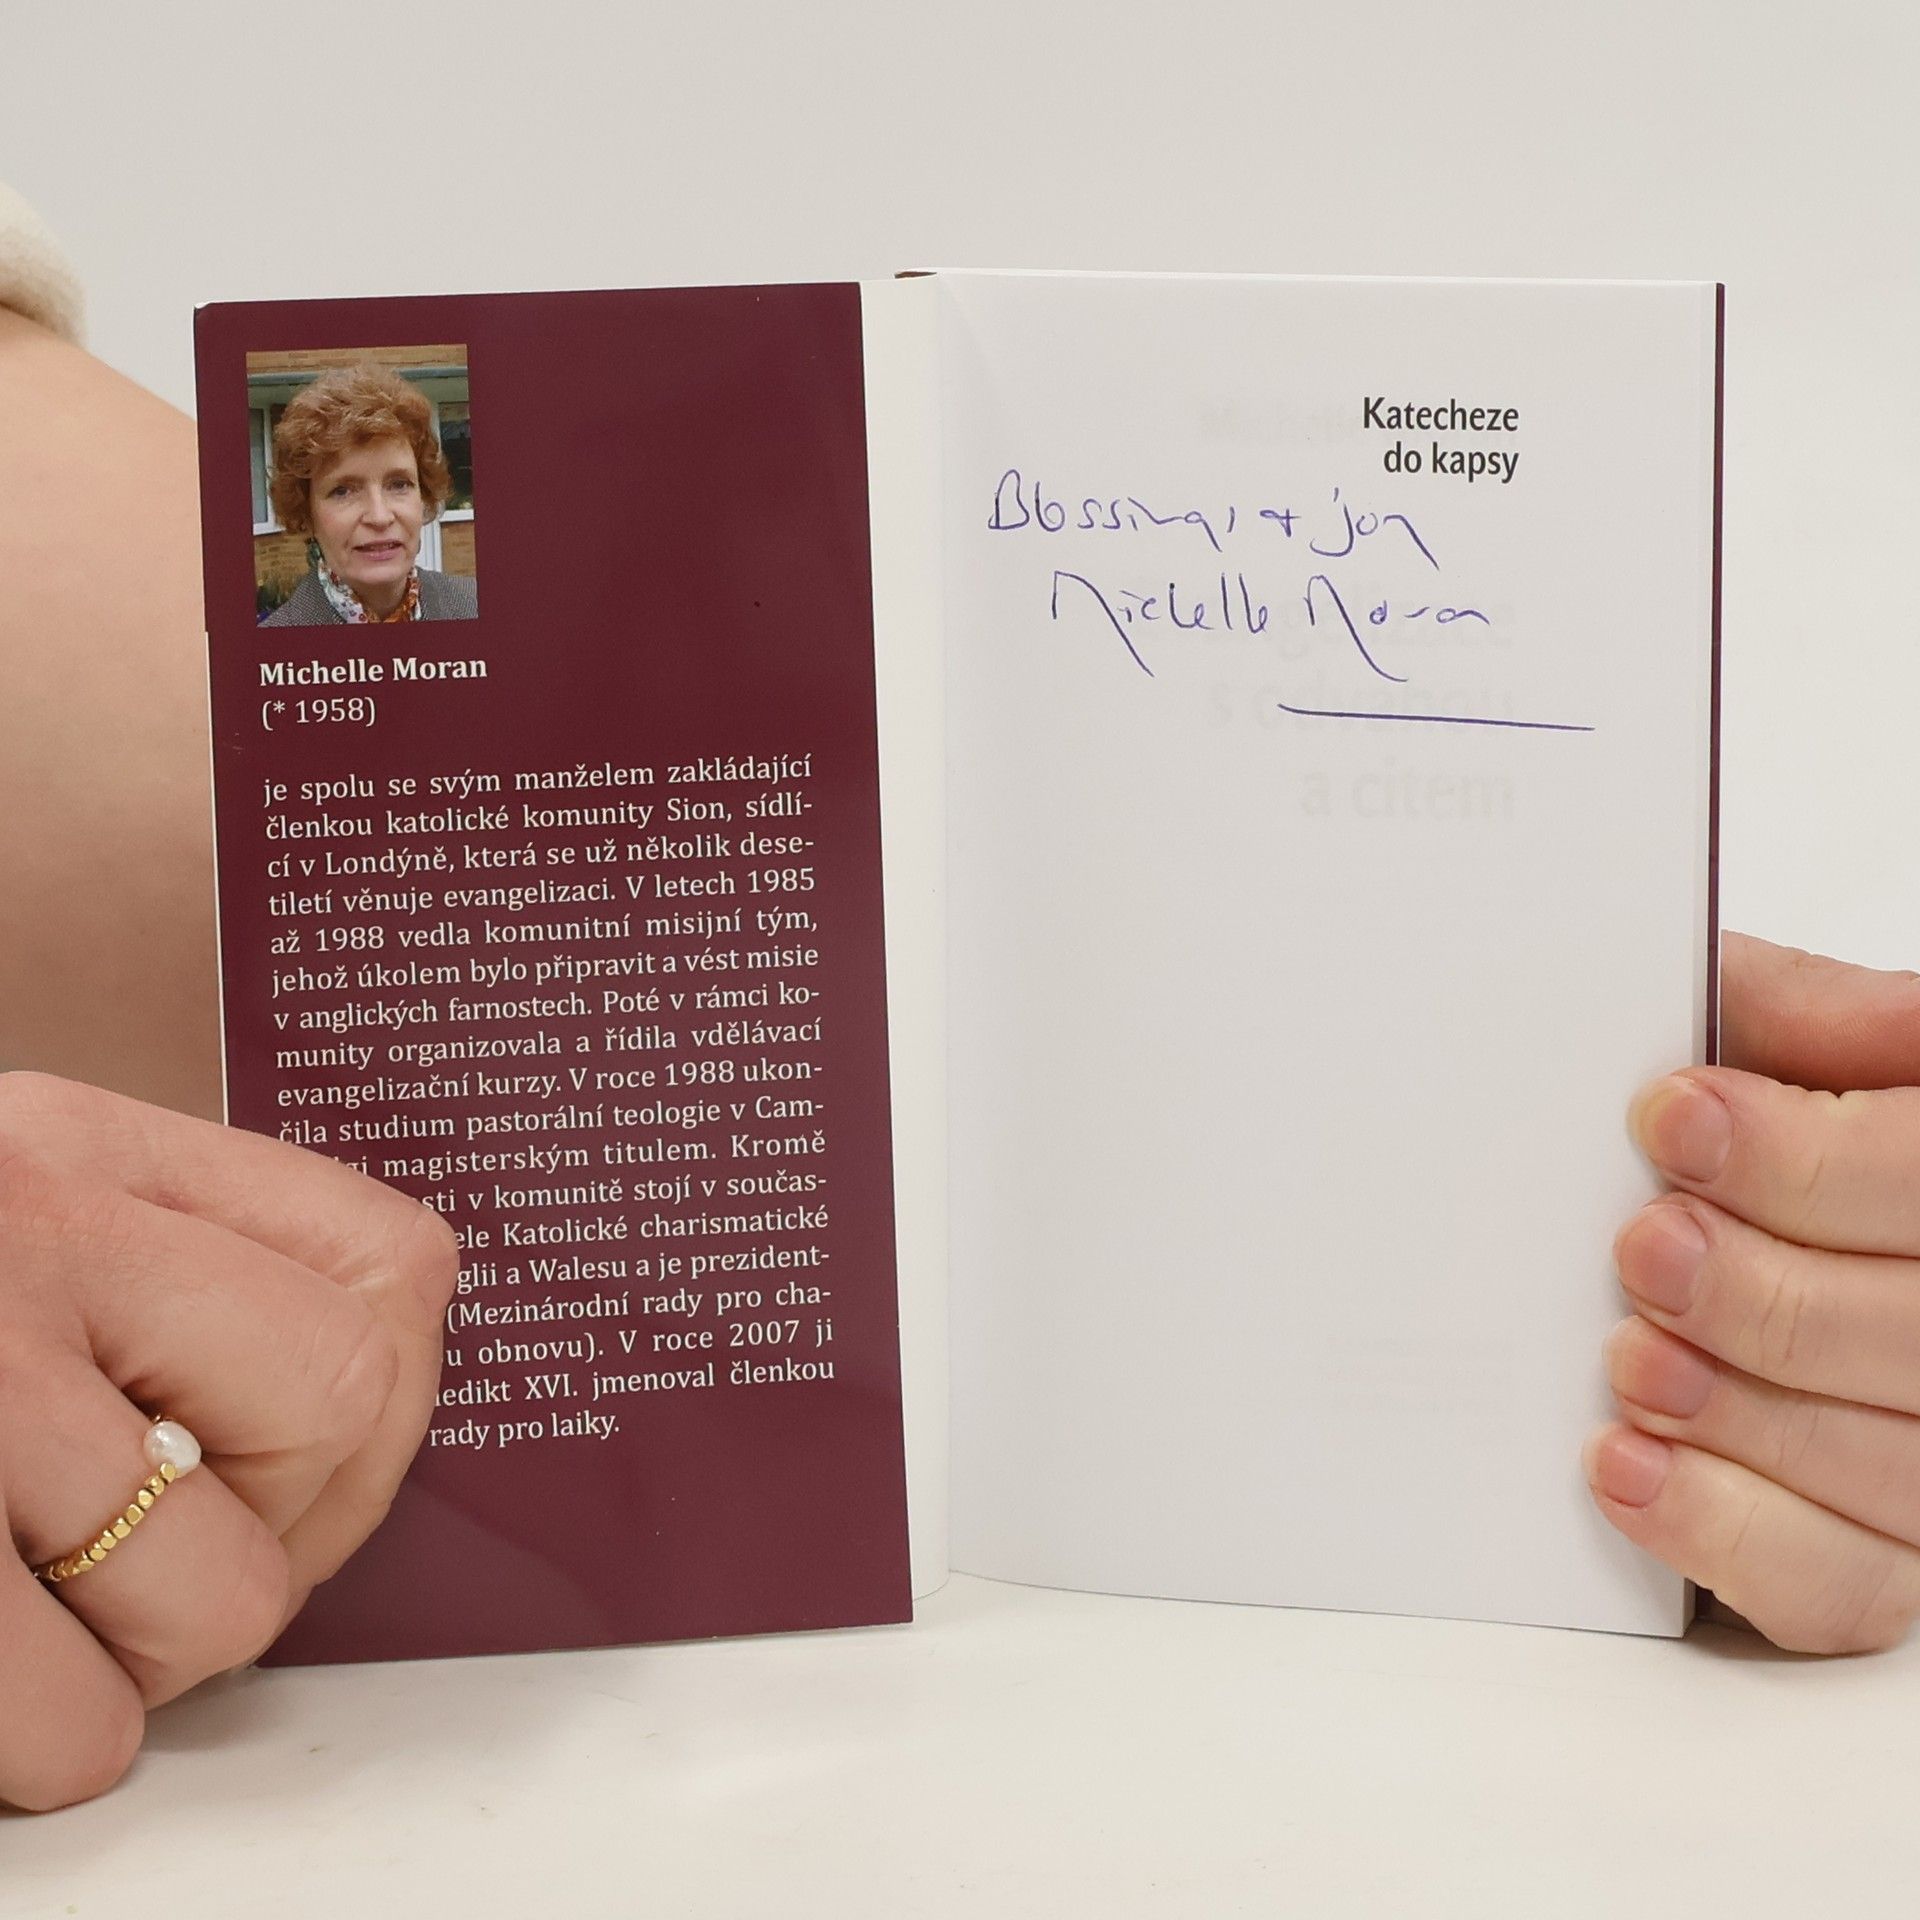 Michelle Moran
(* 1958)
je spolu se svým manželem zakládající
členkou katolické komunity Sion, sídlí-
cí v Londýně, která se už několik dese-
tiletí věnuje evangelizaci. V letech 1985
až 1988 vedla komunitní misijní tým,
jehož úkolem bylo připravit a vést misie
v anglických farnostech. Poté v rámci ko-
munity organizovala a řídila vdělávací
evangelizační kurzy. V roce 1988 ukon-
čila studium pastorální teologie v Cam-
magisterským titulem. Kromě
sti v komunitě stojí v součas-
ele Katolické charismatické
glii a Walesu a je prezident-
(Mezinárodní rady pro cha-
u obnovu). V roce 2007 ji
edikt XVI. jmenoval členkou
rady pro laiky.
Katecheze
do kapsy
Blessings + joy
Michelle Moran
s odvahou
a citem